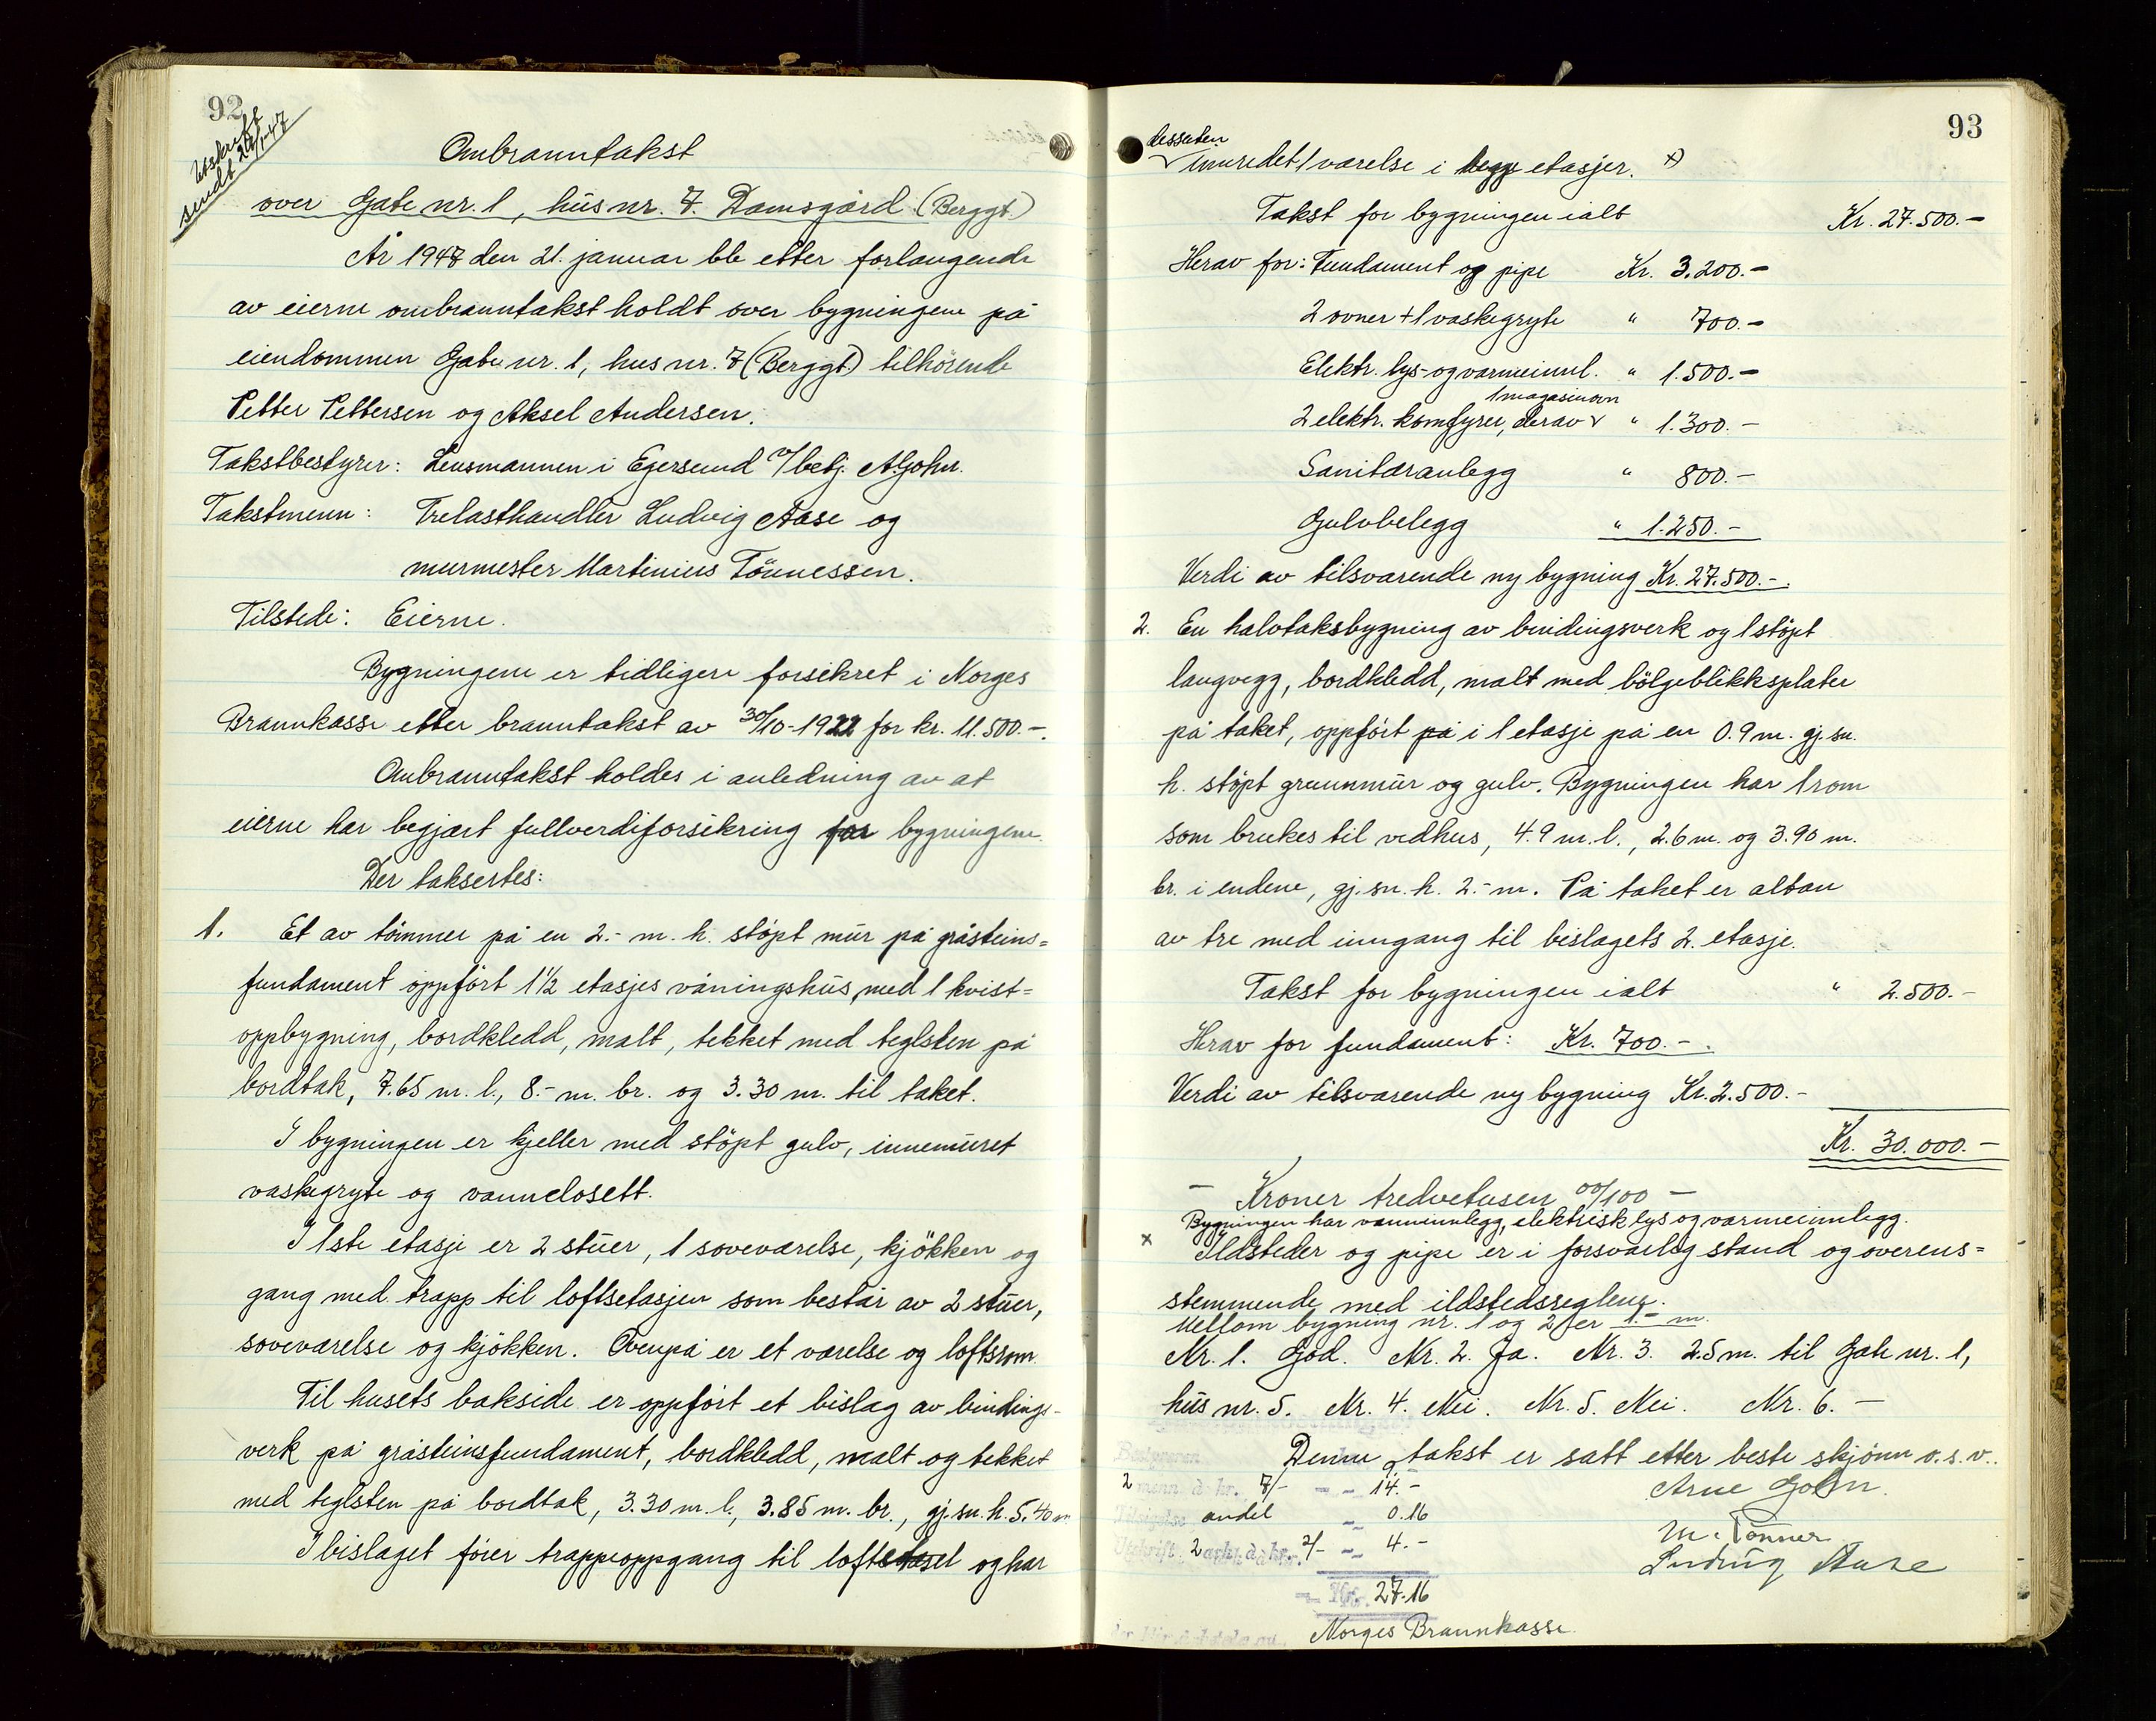 92
Utskrift
sendt 24/1-47
Ombranntakst
over Gate nr. 1, hus nr. 7. Damsgård (Berggt.)
År 1947 den 21. januar ble etter forlangende
av eierne ombranntakst holdt over bygningene på
eiendommen Gate nr. 1, hus nr. 7 (Berggt.) tilhörende
Petter Pettersen og Aksel Andersen.
Takstbestyrer: Lensmannen i Egersund v/betj. A. Gohn.
Takstmenn: Trelasthandler Ludvig Aase og
murmester Martinius Tönnessen.
Tilstede: Eierne.
Bygningene er tidligere forsikret i Norges
Brannkasse etter branntakst av 30/10-1922 for kr. 11.500.-.
Ombranntakst holdes i anledning av at
eierne har begjært fullverdiforsikring for bygningene.
Der taksertes:
1. Et av tömmer på en 2.- m. h. stöpt mur på gråsteins=
fundament oppfört 1½ etasjes våningshus, med 1 kvist=
oppbygning, bordkledd, malt, tekket med teglsten på
bordtak, 7.65 m. l., 8.- m. br. og 3.30 m. til taket.
I bygningen er kjeller med stöpt gulv, innemuret
vaskegryte og vannclosett.
I 1ste etasje er 2 stuer, 1 soveværelse, kjökken og
gang med trapp til loftsetasjen som består av 2 stuer,
soveværelse og kjökken. Ovenpå er et værelse og loftsrom.
Til husets bakside er oppfört et bislag av bindings-
verk på gråsteinsfundament, bordkledd, malt og tekket
med teglsten på bordtak, 3.30 m. l., 3.85 m. br., gj.sn. h. 5.40 m.
I bislaget förer trappeoppgang til loftet og har
93
dessuten
innredet 1 værelse i begge etasjer. x)
Takst for bygningen ialt Kr. 27.500.-
Herav for: Fundament og pipe Kr. 3.200.-
2 ovner + 1 vaskegryte " 700.-
Elektr. lys- og varmeinnl. " 1.500.-
1 magasinovn
2 elektr. komfyrer, derav v " 1.300.-
Sanitæranlegg " 800.-
Gulvbelegg " 1.250.-
Verdi av tilsvarende ny bygning Kr. 27.500.-.
2. En halvtaksbygning av bindingsverk og 1 stöpt
langvegg, bordkledd, malt med bölgeblikksplater
på taket, oppfört på i 1 etasje på en 0.9 m. gj.sn.
h. stöpt grunnmur og gulv. Bygningen har 1 rom
som brukes til vedhus, 4.9 m. l., 2.6 m. og 3.90 m.
br. i endene, gj.sn. h. 2.- m. På taket er altan
av tre med inngang til bislagets 2. etasje.
Takst for bygningen ialt " 2.500.-
Herav for fundament: Kr. 700.-.
Verdi av tilsvarende ny bygning Kr. 2.500.-
Kr. 30.000.-
- Kroner tredvetusen 00/100 -
Bygningen har vanninnlegg, elektrisk lys og varmeinnlegg.
x Ildsteder og pipe er i forsvarlig stand og overens=
stemmende med ildstedsreglene.
Mellom bygning nr. 1 og 2 er 1.- m.
Nr. 1. God. Nr. 2. Ja. Nr. 3. 2.5 m. til Gate nr. 1,
hus nr. 5. Nr. 4. Nei. Nr. 5. Nei. Nr. 6. -
Denne takst er satt etter beste skjönn o.s.v..
Bestyreren
2 menn à kr. 7/- - - 14.-
Arne Gohn.
andel - 0.16
M. Tönner
Utskrift 2 ark à kr. 2/- - - 4.-
Ludvig Aase
Kr. 27.16
Norges Brannkasse.